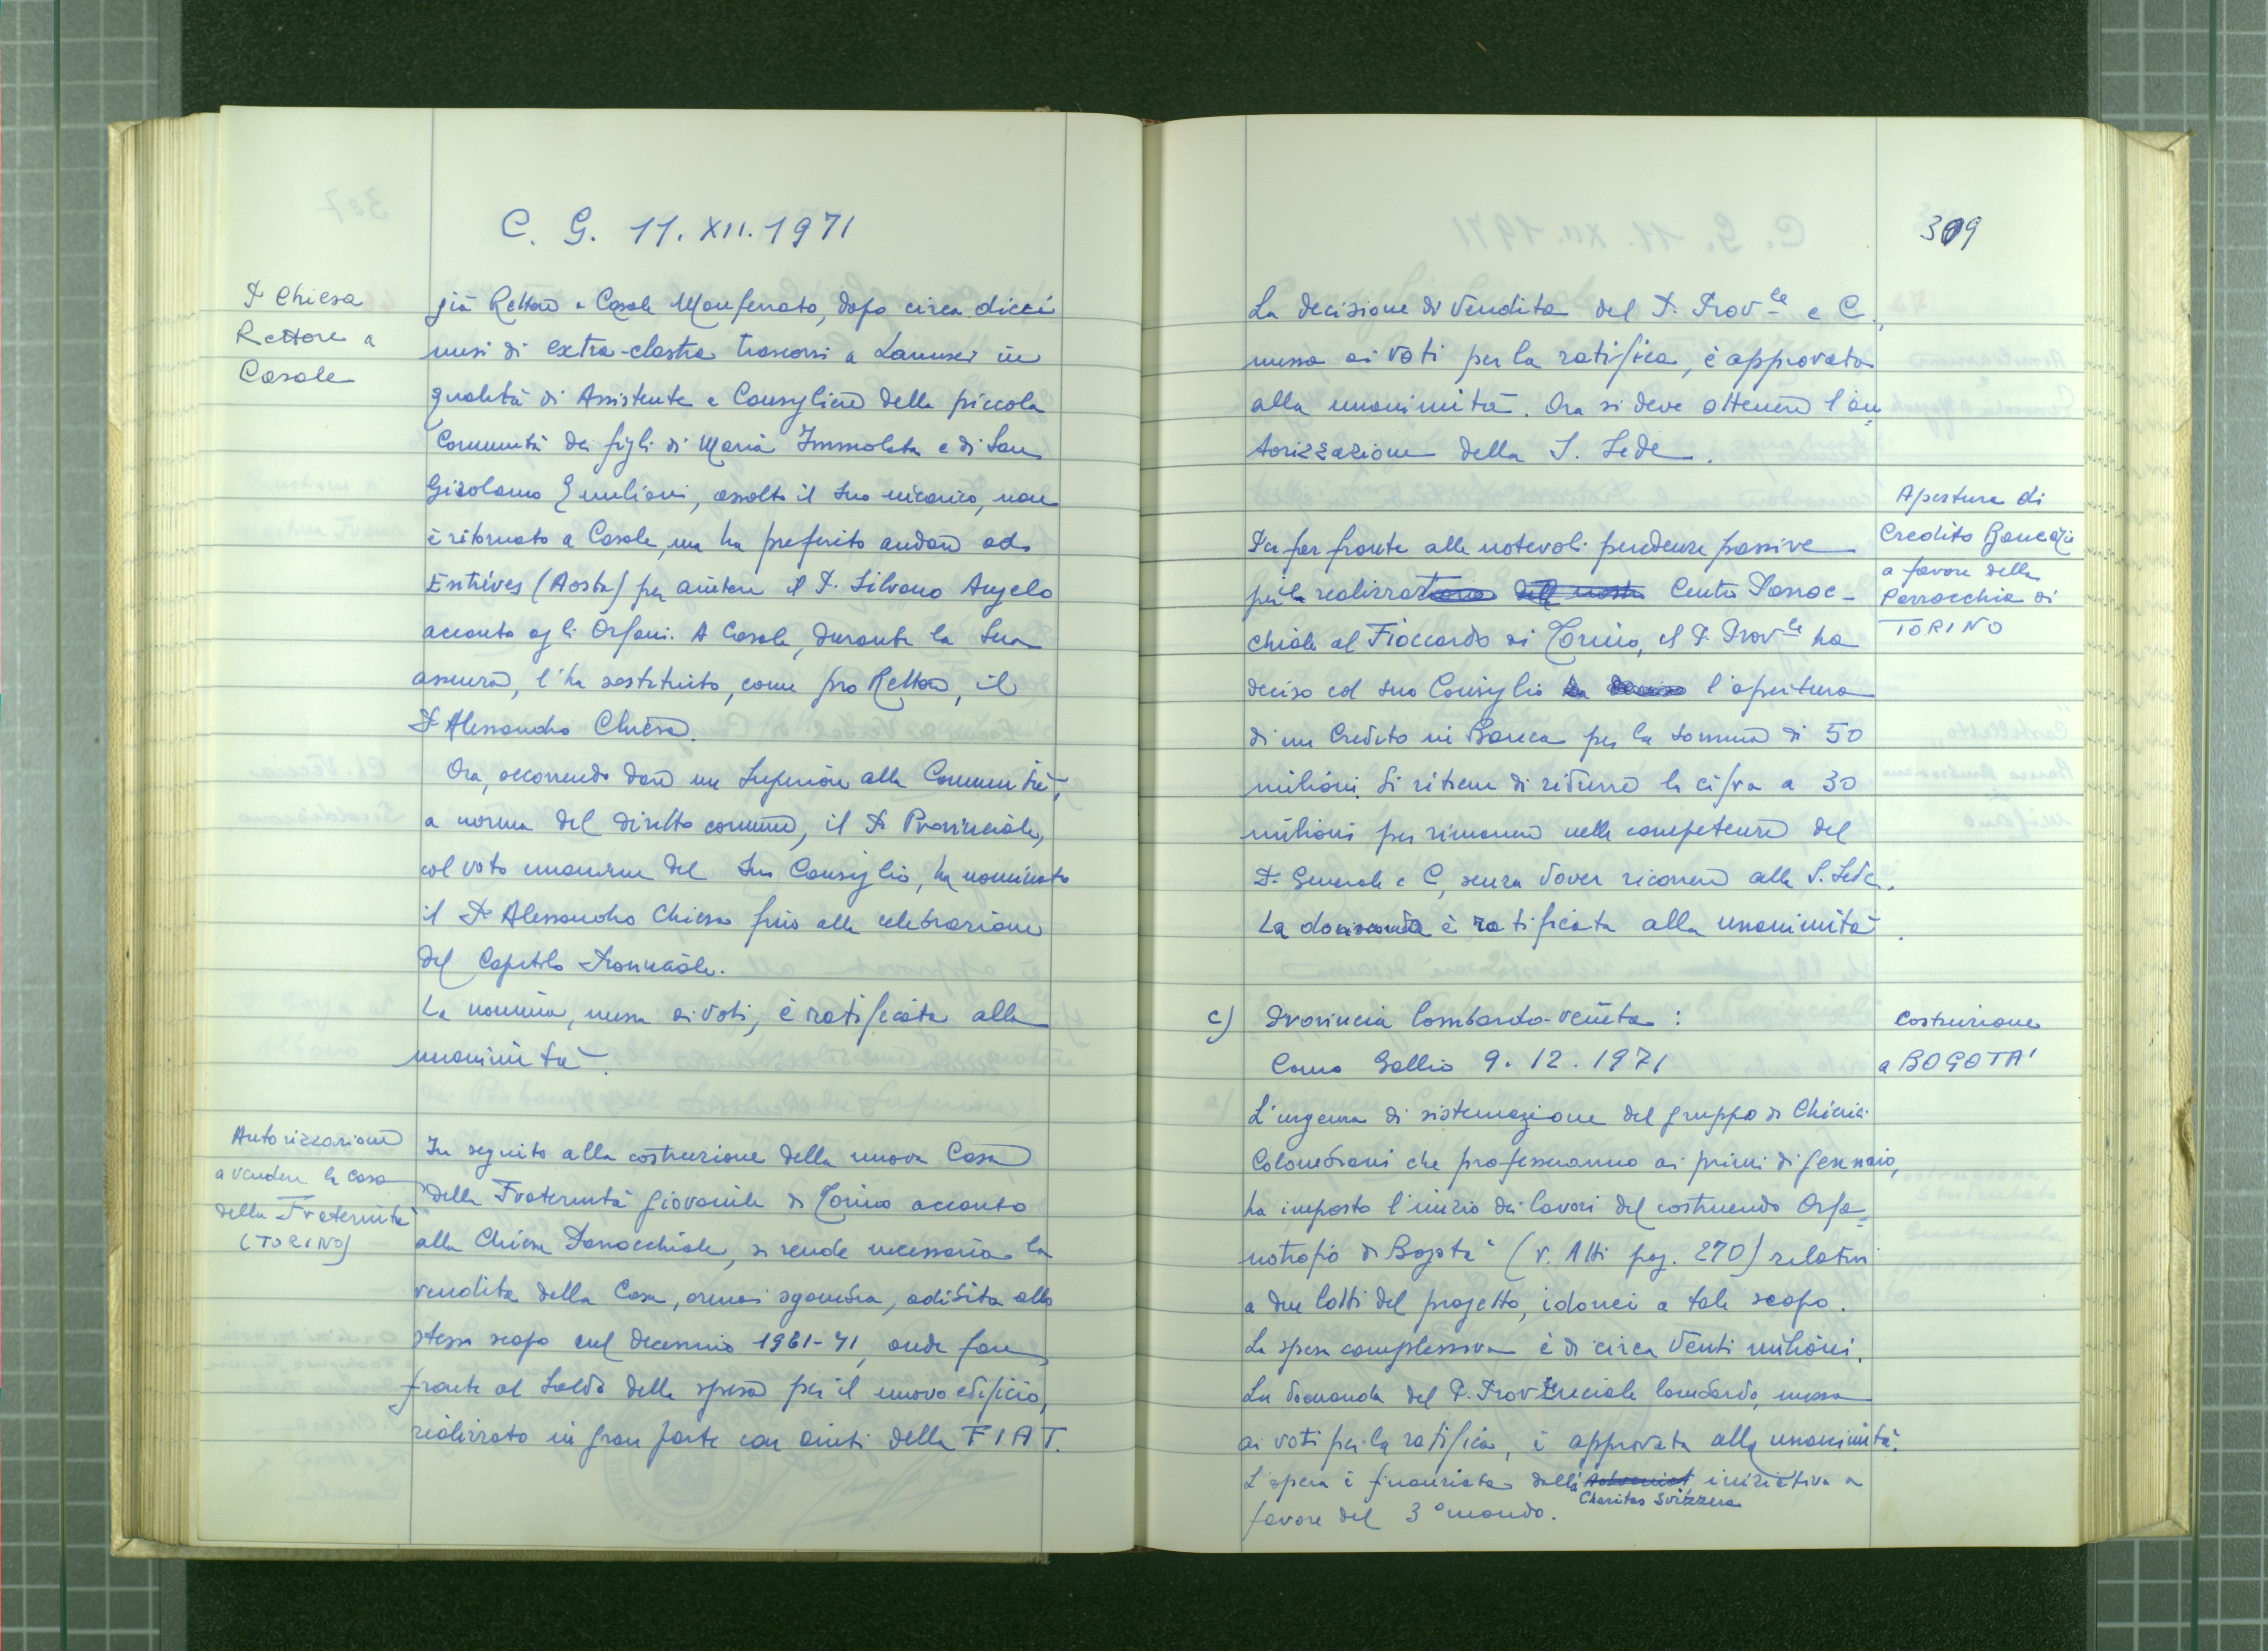 C. G. 11. XII. 1971
P. Chiesa
Rettore a
Casale
già Rettore a Casale Monferrato, dopo circa dieci
mesi di extra-claustra trascorsi a Lanusei in
qualità di Assistente e Consigliere della piccola
Comunità dei figli di Maria Immolata e di San
Girolamo Emiliani, assolto il suo incarico, non
è ritornato a Casale, ma ha preferito andare ad
Entrèves (Aosta) per aiutare il P. Silvano Angelo
accanto agli Orfani. A Casale, durante la sua
assenza, l'ha sostituito, come pro Rettore, il
P. Alessandro Chiesa.
Ora, occorrendo dare un Superiore alla Comunità,
a norma del diritto comune, il P. Provinciale,
col voto unanime del suo Consiglio, ha nominato
il P. Alessandro Chiesa fino alla celebrazione
del Capitolo Provinciale.
La nomina, messa ai voti, è ratificata alla
unanimità.
Autorizzazione
a vendere la casa
della Fraternità
(TORINO)
In seguito alla costruzione della nuova Casa
della Fraternità giovanile di Torino accanto
alla Chiesa Parrocchiale, si rende necessaria la
vendita della Casa, ormai sgombra, adibita allo
stesso scopo nel decennio 1961-71, onde fare
fronte al saldo delle spese per il nuovo edificio,
realizzato in gran parte con aiuti della FIAT.
309
La decisione di vendita del P. Prov.le e C.,
messa ai voti per la ratifica, è approvata
alla unanimità. Ora si deve ottenere l'au=
torizzazione della S. Sede.
Apertura di
Credito Bancario
a favore della
Parrocchia di
TORINO
Per far fronte alle notevoli pendenze passive
per la realizzazione del nostro Centro Parroc-
chiale al Fioccardo di Torino, il P. Prov.le ha
deciso col suo Consiglio ha deciso l'apertura
di un Credito in Banca per la somma di 50
milioni. Si ritiene di ridurre la cifra a 30
milioni per rimanere nelle competenze del
P. Generale e C, senza dover ricorrere alla S. Sede.
La domanda è ratificata alla unanimità.
c) Provincia Lombardo-veneta:
Como Gallio 9. 12. 1971
Costruzione
a BOGOTA'
L'urgenza di sistemazione del gruppo di Chierici
Colombiani che professeranno ai primi di gennaio,
ha imposto l'inizio dei lavori del costruendo Orfa=
notrofio di Bogotà (v. Atti pag. 270) relativi
a due lotti del progetto, idonei a tale scopo.
La spesa complessiva è di circa venti milioni.
La domanda del P. Provinciale lombardo, messa
ai voti per la ratifica, è approvata alla unanimità.
L'opera è finanziata dalla iniziativa a
Charitas Svizzera
favore del 3° mondo.